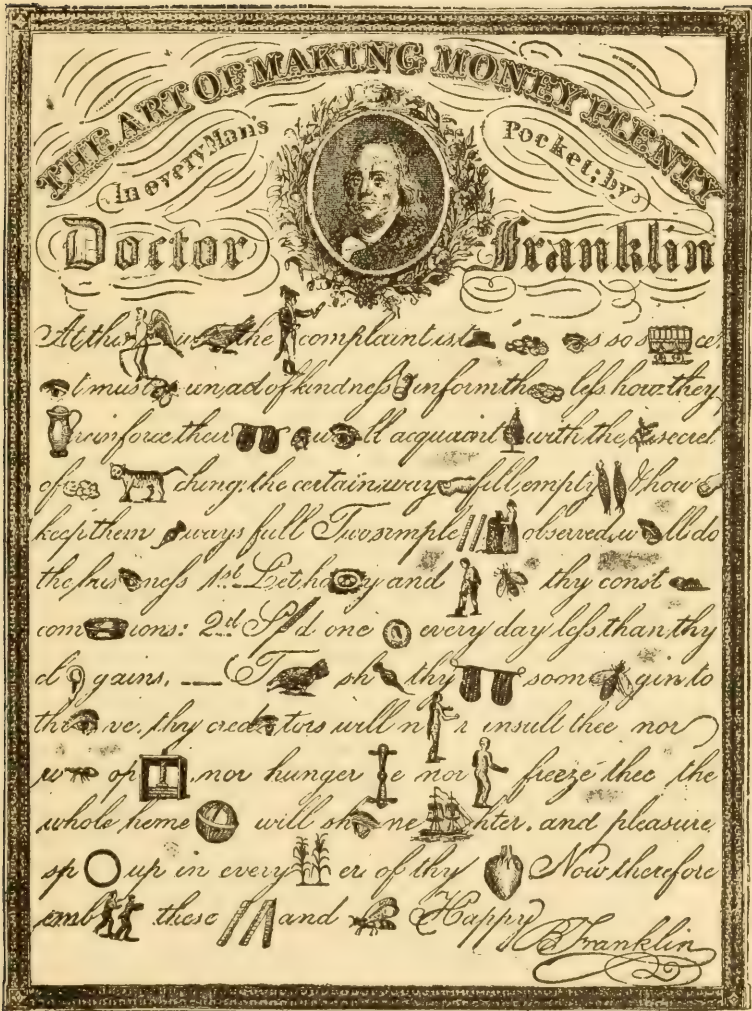 THE ART OF MAKING MONEY PLENTY
In every Man's
Pocket; by
Doctor Franklin
At this the complaint is t s so s ce
t must un, ad of kindness inform the less how they
reinforce their w ll acquaint with the secret
of ching; the certain way fill empty & how
keep them ways full Two simple observed, w ll do
the bus ness 1st Let ho y and thy const
com ions: 2nd Sp d one every day less than thy
cl gains. T sh thy soon gin to
th ve, thy cred tors will n r insult thee nor
w op nor hunger e nor freeze thee the
whole heme will sh ne hter. and pleasure
sp up in every er of thy Now therefore
emb these and Happy
B Franklin